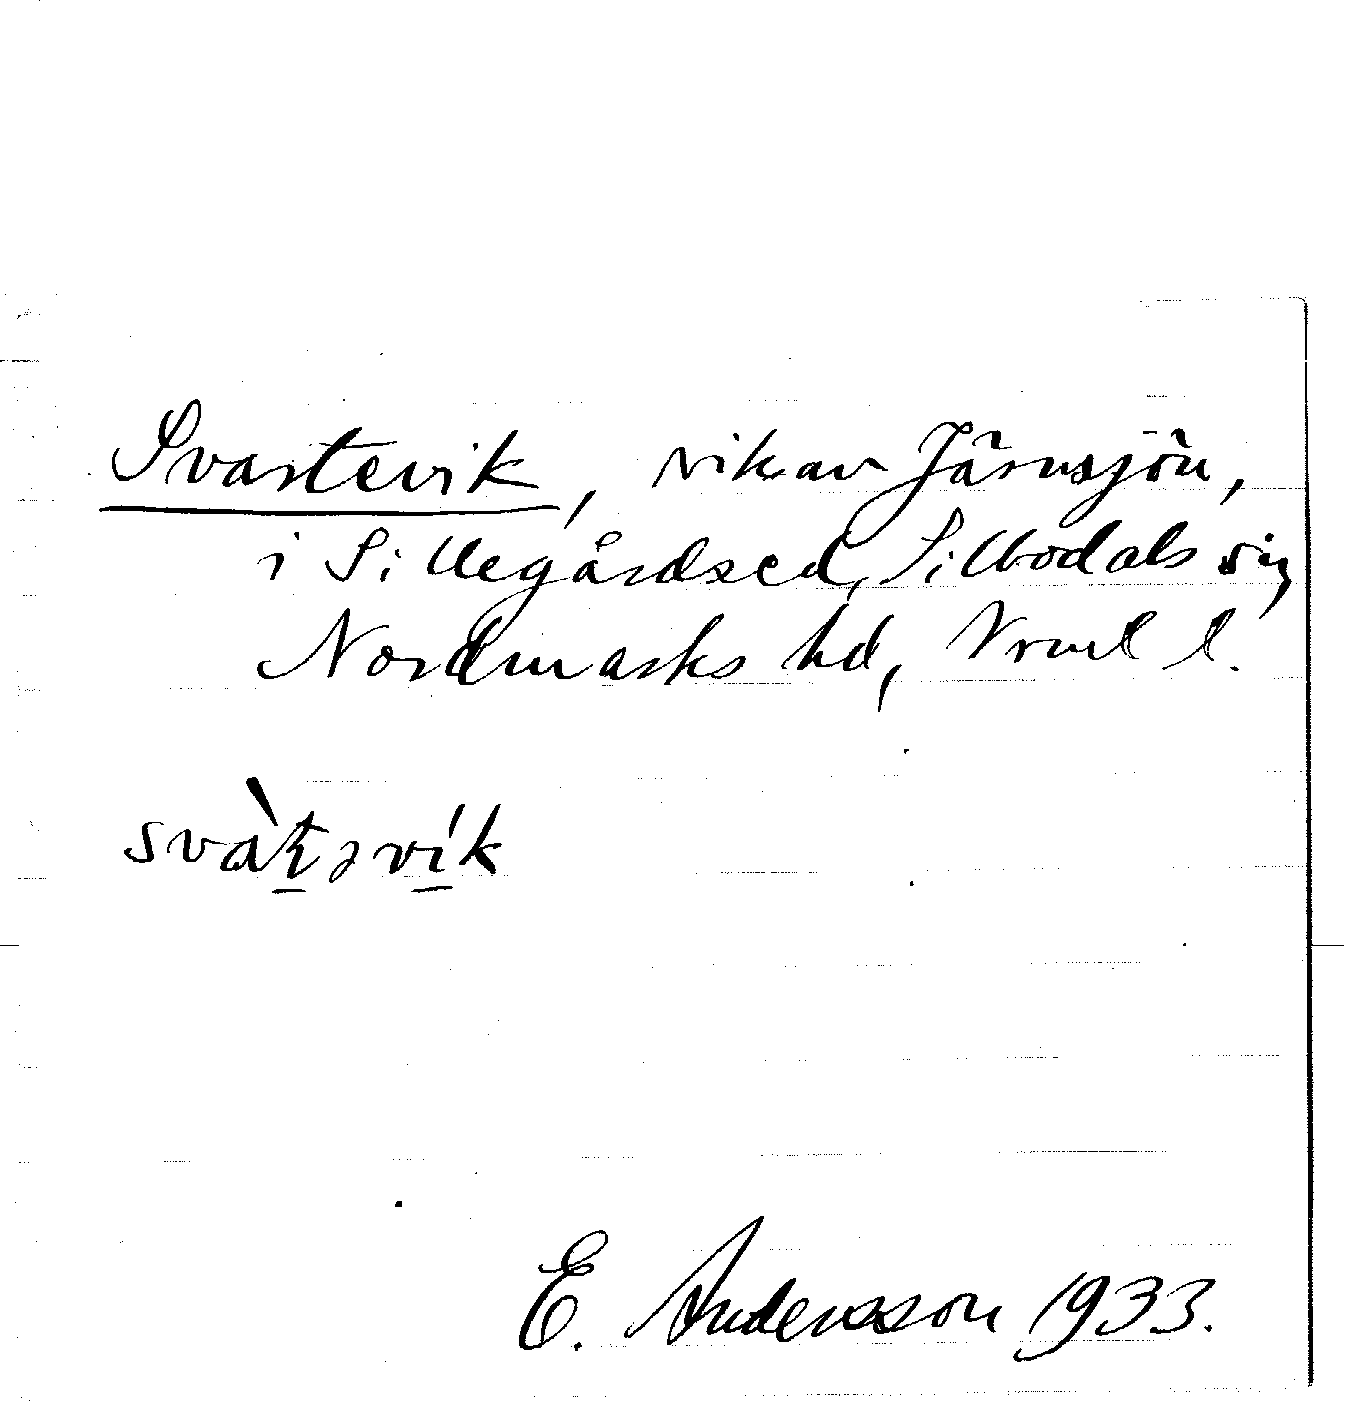 Svartevik, vik av Järnsjön,
i Sillegårdsed, Silbodals
Nordmarks hd, Vrml l.
svàt̲əví̲k
E. Andersson 1933.